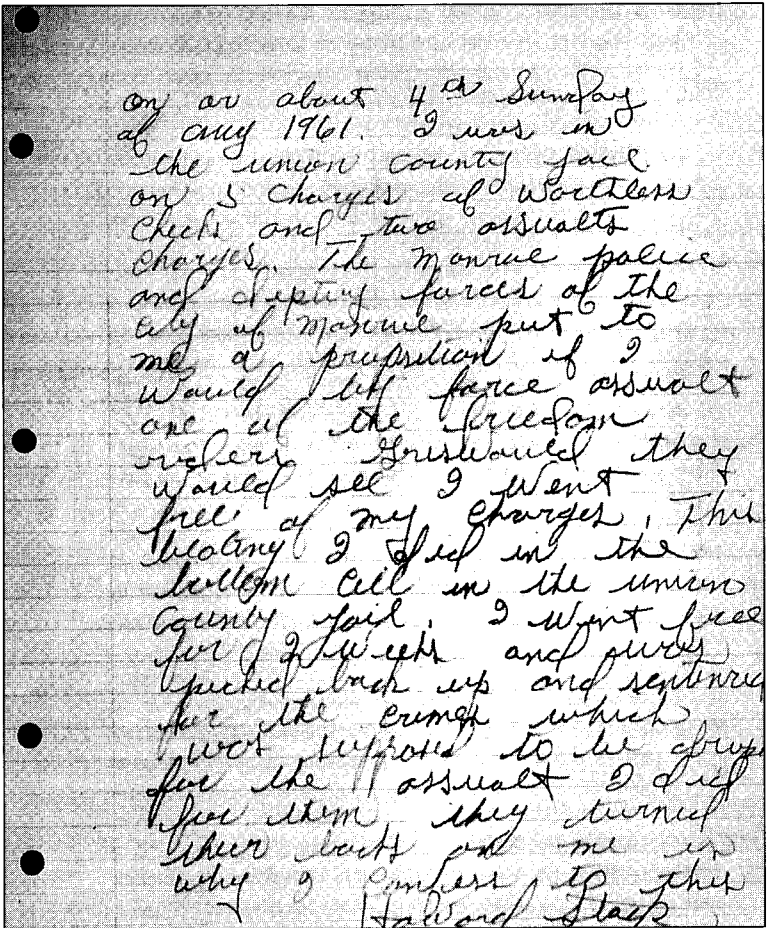 on or about 4th Sunday
of aug 1961. I was in
the union county jail
on 5 charges of worthless
checks and two assualts
charges. The Monroe police
and depting forces of the
city of Monroe put to
me a proposition if I
would by force assualt
one of the freedom
riders Griswould they
would see I went
free of my charges. This
beating I did in the
bottom cell in the union
County jail. I went free
for 2 weeks and was
picked back up and sentenced
for the crimes which
was suppose to be
for the assualt I did
for them they turned
their backs on me is
why I confess to this
Howard Stack